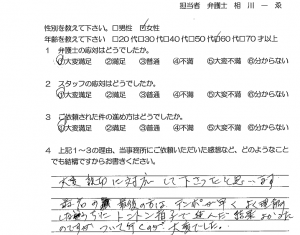 担当者 弁護士 相川一
性別を教えて下さい。 □男性 ☑女性
年齢を教えて下さい □20代□30代□40代□50代☑60代□70才以上
1 弁護士の応対はどうでしたか。
①大変満足 ②満足 ③普通 ④不満 ⑤大変不満 ⑥分からない
2 スタッフの応対はどうでしたか。
①大変満足 ②満足 ③普通 ④不満 ⑤大変不満 ⑥分からない
3 ご依頼された件の進め方はどうでしたか。
①大変満足 ②満足 ③普通 ④不満 ⑤大変不満 ⑥分からない
4 上記1～3の理由、当事務所にご依頼いただいた感想など、どのようなことでも結構ですからお書きください。
大変親切に対応して下さったと思います
最後の方は テンポが早く よく理解
しないうちに トントン拍子で進んだ結果
のですが ついて行くのが大変でした。